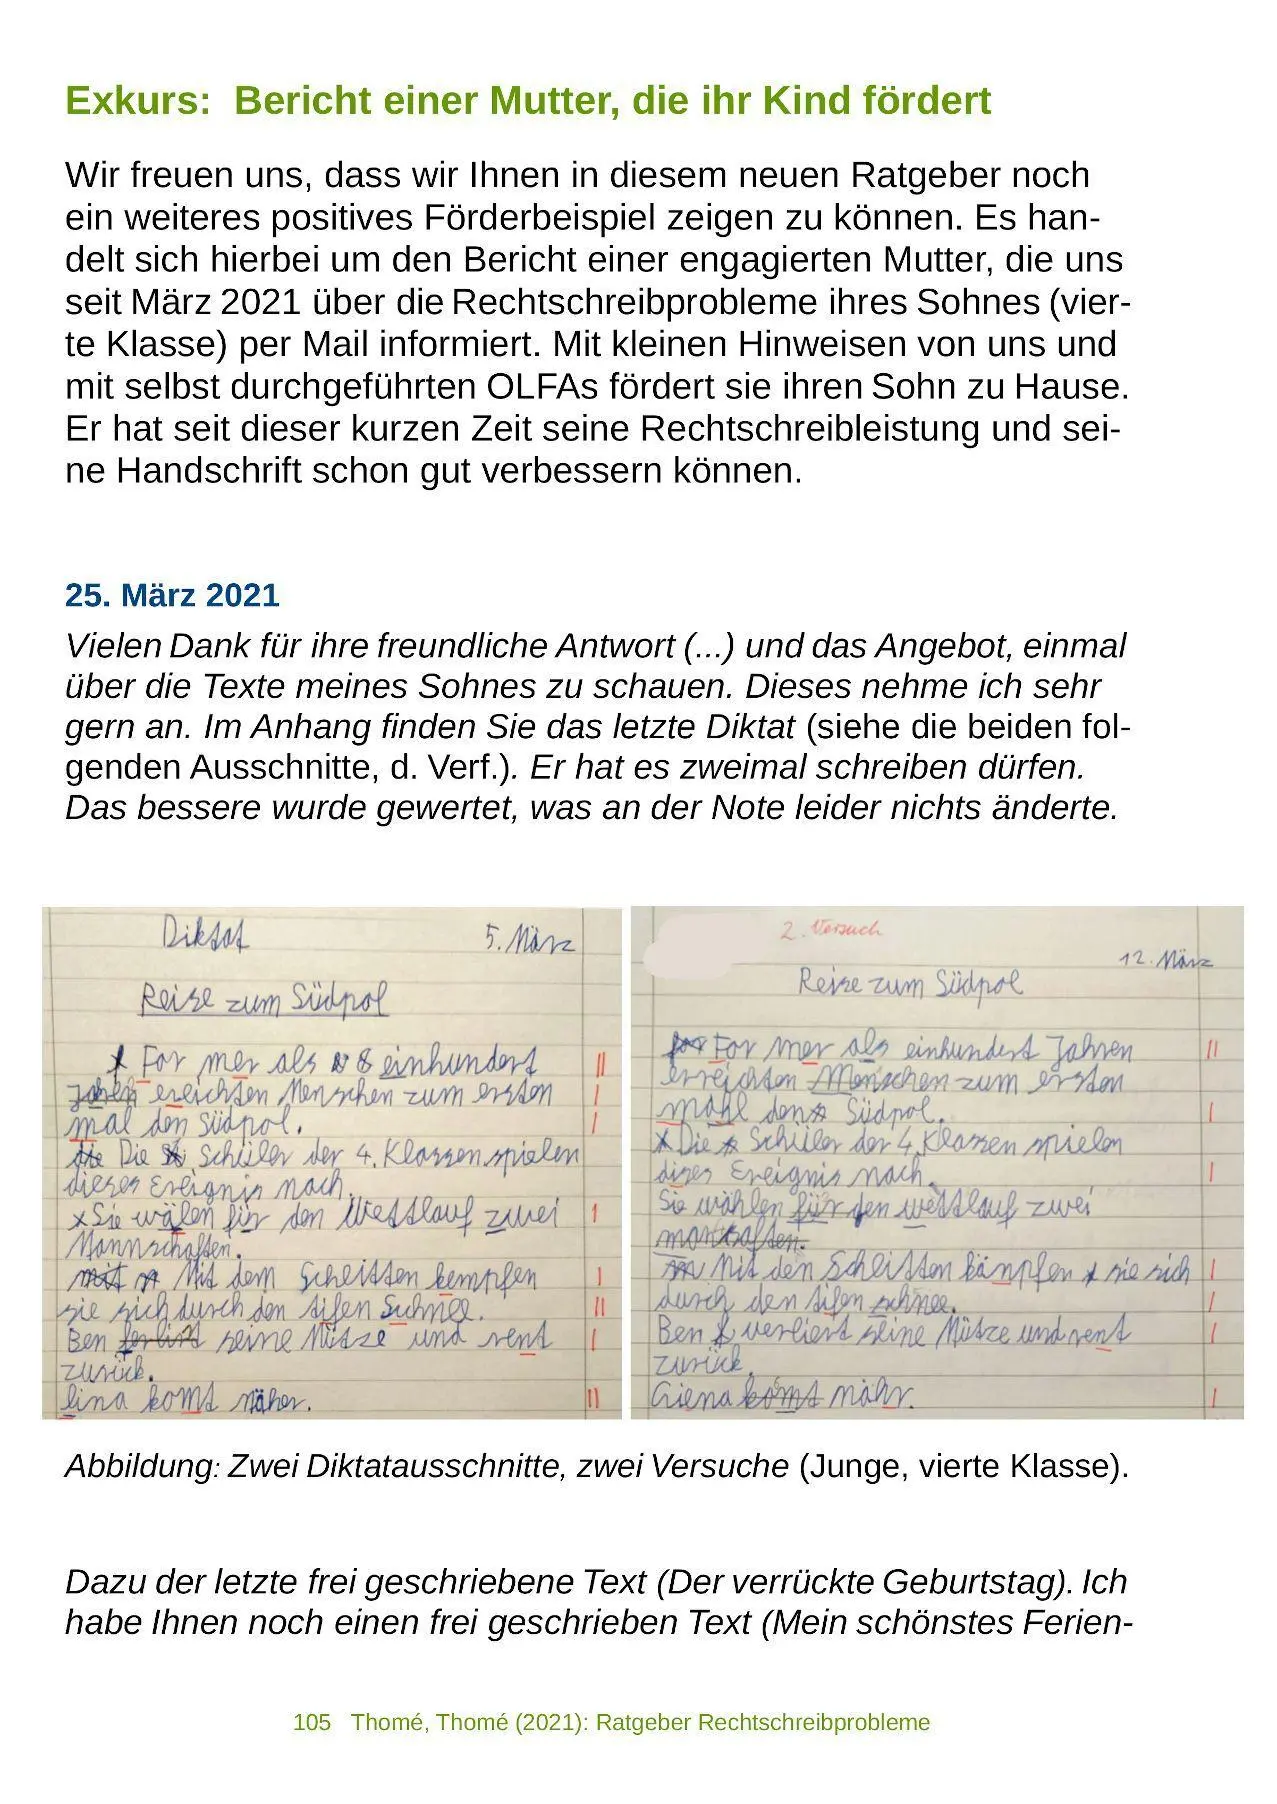 Exkurs: Bericht einer Mutter, die ihr Kind fördert
Wir freuen uns, dass wir Ihnen in diesem neuen Ratgeber noch
ein weiteres positives Förderbeispiel zeigen zu können. Es han-
delt sich hierbei um den Bericht einer engagierten Mutter, die uns
seit März 2021 über die Rechtschreibprobleme ihres Sohnes (vier-
te Klasse) per Mail informiert. Mit kleinen Hinweisen von uns und
mit selbst durchgeführten OLFAs fördert sie ihren Sohn zu Hause.
Er hat seit dieser kurzen Zeit seine Rechtschreibleistung und sei-
ne Handschrift schon gut verbessern können.
25. März 2021
Vielen Dank für ihre freundliche Antwort (...) und das Angebot, einmal
über die Texte meines Sohnes zu schauen. Dieses nehme ich sehr
gern an. Im Anhang finden Sie das letzte Diktat (siehe die beiden fol-
genden Ausschnitte, d. Verf.). Er hat es zweimal schreiben dürfen.
Das bessere wurde gewertet, was an der Note leider nichts änderte.
Diktat 5. März
Reise zum Südpol
For mer als einhundert
Jahren ereichten Menschen zum ersten
mal den Südpol.
Die Schüler der 4. Klassen spielen
dieses Ereignis nach.
Sie wälen für den Wettlauf zwei
Mannschaften.
Mit dem Schlitten kempfen
sie sich durch den tifen Suhnee.
Ben seine Mütze und rent
zurück.
lina komt näher.
2. Versuch
12. März
Reise zum Südpol
For mer als einhundert Jahren
erreichten Menschen zum ersten
mahl den Südpol.
Die Schüler der 4. Klassen spielen
dises Ereignis nach.
Sie wählen für den wettlauf zwei
Mit den Schlitten kämpfen sie sich
durch den tifen schnee.
Ben verliert seine Mütze und rent
zurück.
komt nähr.
Abbildung: Zwei Diktatausschnitte, zwei Versuche (Junge, vierte Klasse).
Dazu der letzte frei geschriebene Text (Der verrückte Geburtstag). Ich
habe Ihnen noch einen frei geschrieben Text (Mein schönstes Ferien-
105 Thomé, Thomé (2021): Ratgeber Rechtschreibprobleme